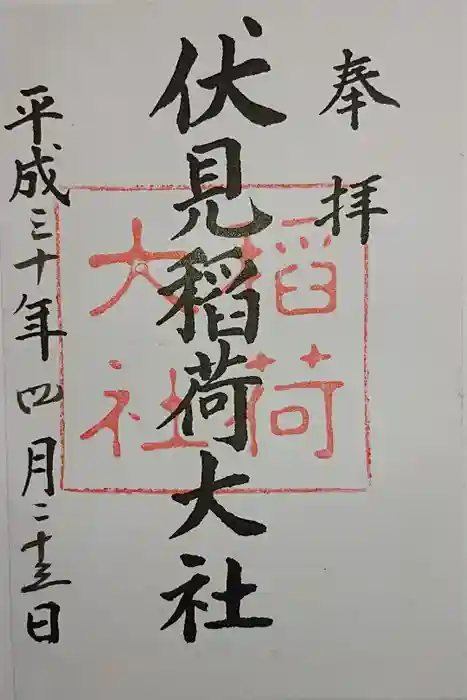 奉拝
伏見稲荷大社
稲荷
大社
平成三十年四月二十三日